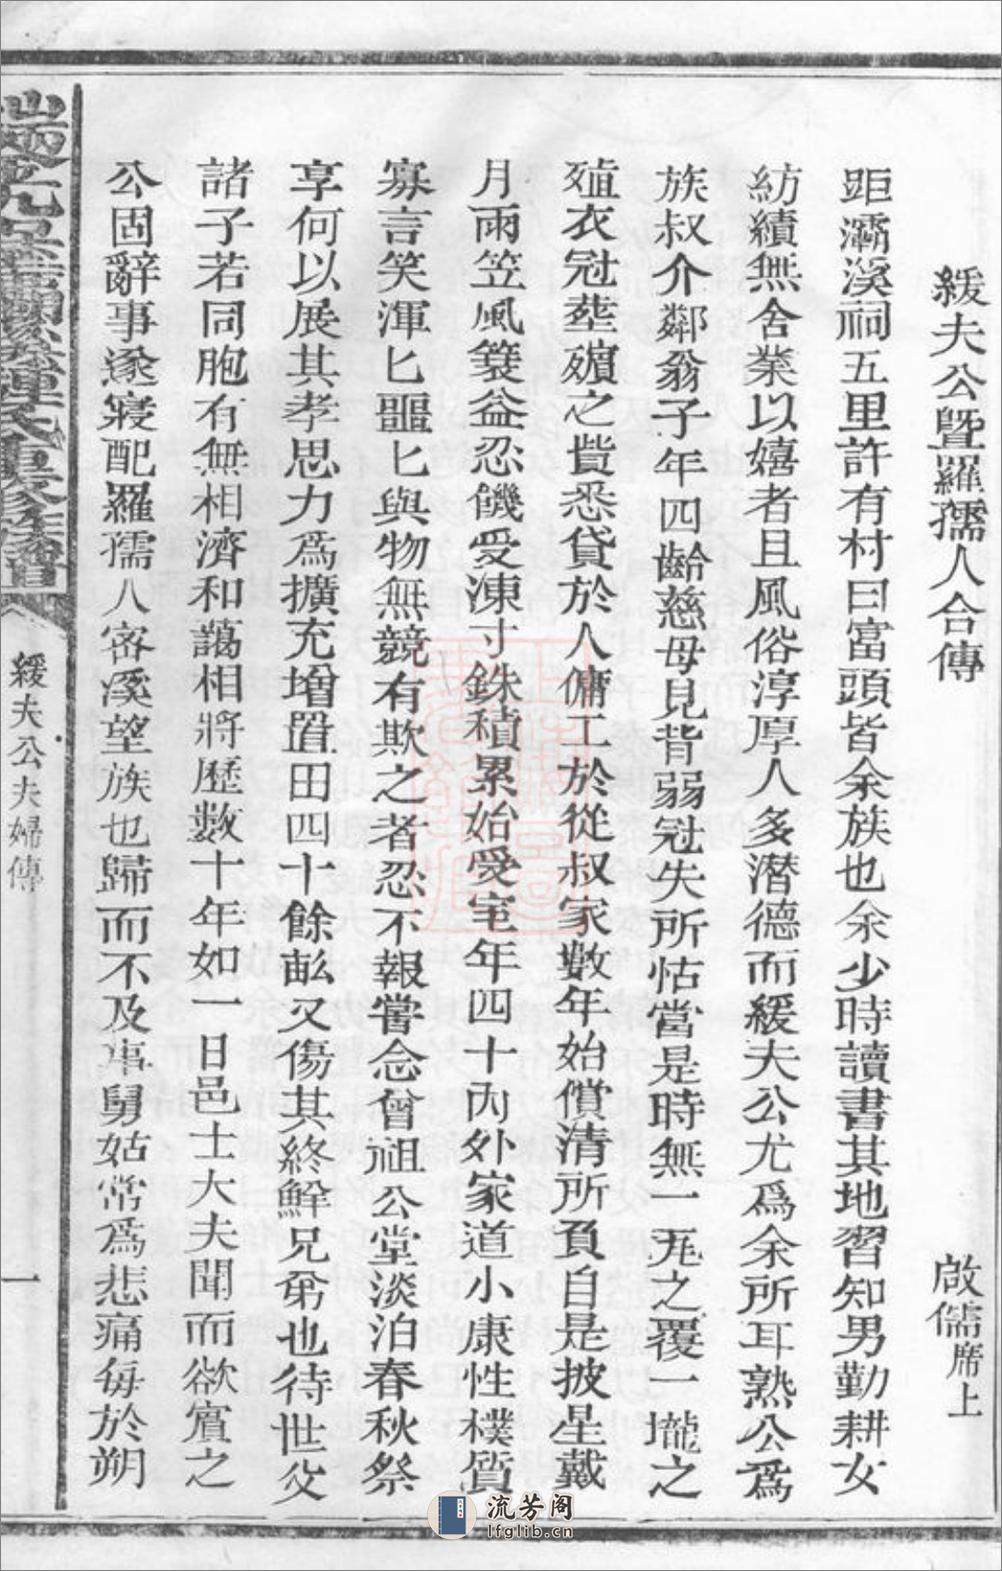 緩夫公暨羅孺人合傳
啟儒席上
距灞溪祠五里許有村曰富頭皆余族也余少時讀書其地習知男勤耕女
紡績無舍業以嬉者且風俗淳厚人多潛德而緩夫公尤爲余所耳熟公爲
族叔介鄰翁子年四齡慈母見背弱冠失所怙當是時無一瓦之覆一壠之
殖衣冠塟殯之貲悉貸於人傭工於從叔家數年始償清所負自是披星戴
月雨笠風簑益忍饑受凍寸銖積累始受室年四十內外家道小康性樸質
寡言笑渾匕噩匕與物無競有欺之者忍不報嘗念曾祖公堂淡泊春秋祭
享何以展其孝思力爲擴充增置田四十餘畝又傷其終鮮兄弟也待世父
諸子若同胞有無相濟和藹相將歷數十年如一日邑士大夫聞而欲賓之
公固辭事遂寢配羅孺人客溪望族也歸而不及事舅姑常爲悲痛每於朔
緩夫公夫婦傳
一
流芳阁
lfglib.cn